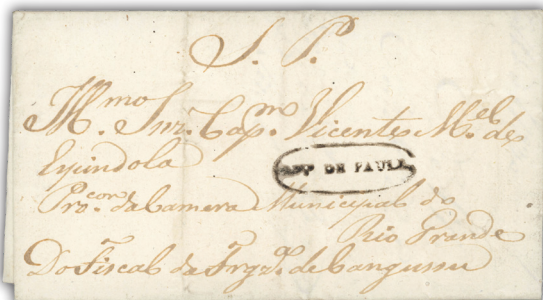 S. P.
Illmo. Snr. Capm. Vicente Mel. de
Espindola
DE PAULA
Procor. da Camera Municipal do
Rio Grande
Do Fiscal da Frgza. de Cangussu